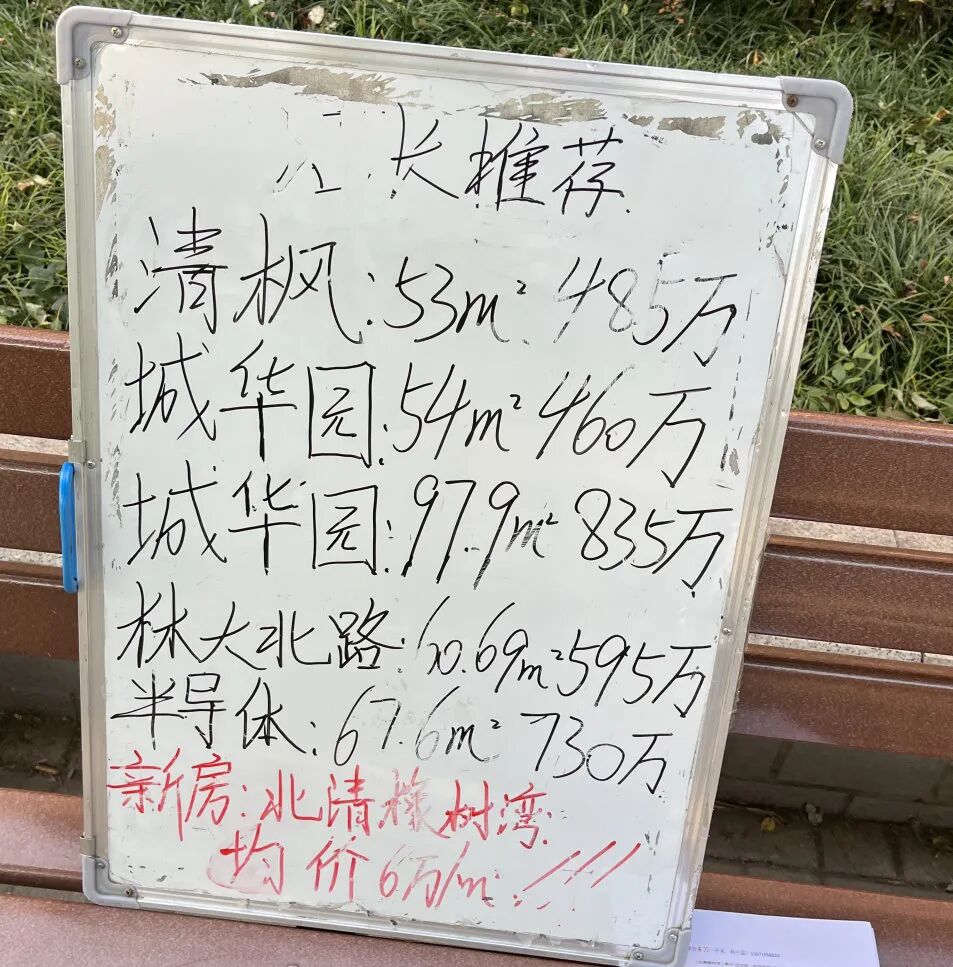 长推荐
清枫:53m² 485万
城华园:54m² 460万
城华园:97.9m² 835万
林大北路:60.69m² 595万
半导体:67.6m² 730万
新房:北清橡树湾
均价6万/m²!!!